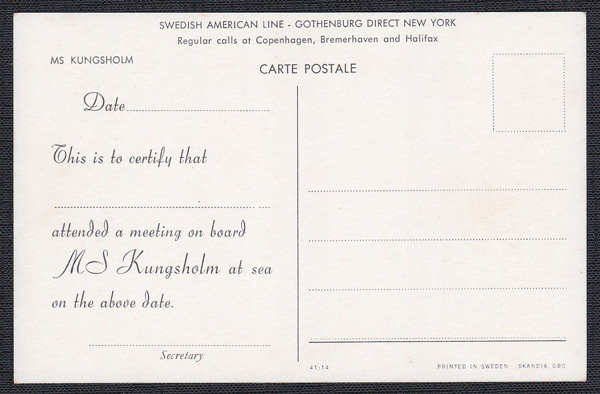 SWEDISH AMERICAN LINE - GOTHENBURG DIRECT NEW YORK
Regular calls at Copenhagen, Bremerhaven and Halifax
MS KUNGSHOLM
CARTE POSTALE
Date
This is to certify that
attended a meeting on board
MS Kungsholm at sea
on the above date.
Secretary
41:14
PRINTED IN SWEDEN SKANDIA, GBG